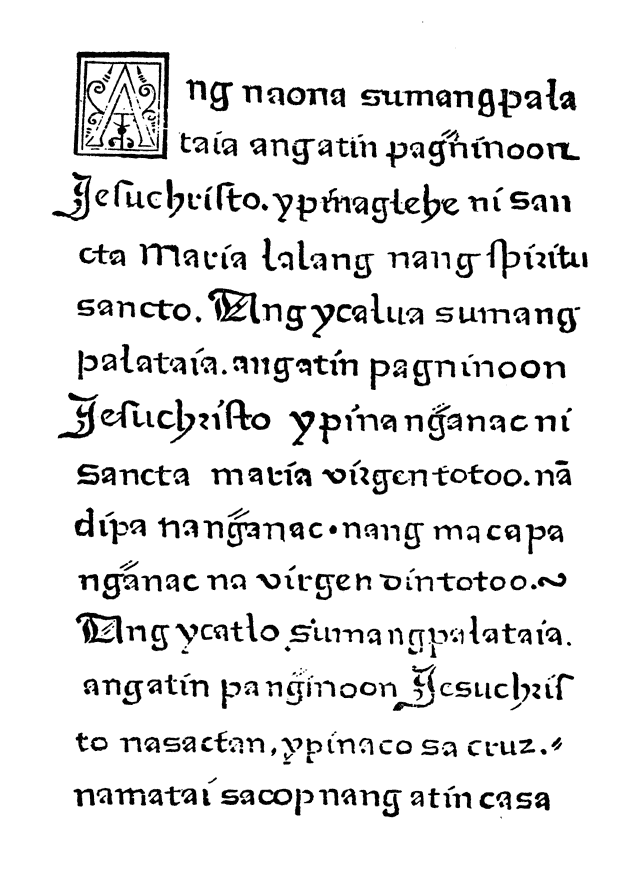 Ang naona sumangpala
taia angatin pagñinoon
Jeſuchriſto. ypinaglehe ni San
cta Maria lalang nang ſpiritu
sancto. Ang ycalua sumang
palataia. angatin pagninoon
Jeſuchriſto ypinang̃anac ni
Sancta maria virgen totoo. nã
dipa nang̃anac. nang macapa
ng̃anac na virgen din totoo.
Ang ycatlo sumangpalataia.
angatin pang̃inoon Jesuchriſ
to nasactan, ypinaco sa cruz.
namatai sacop nang atin casa